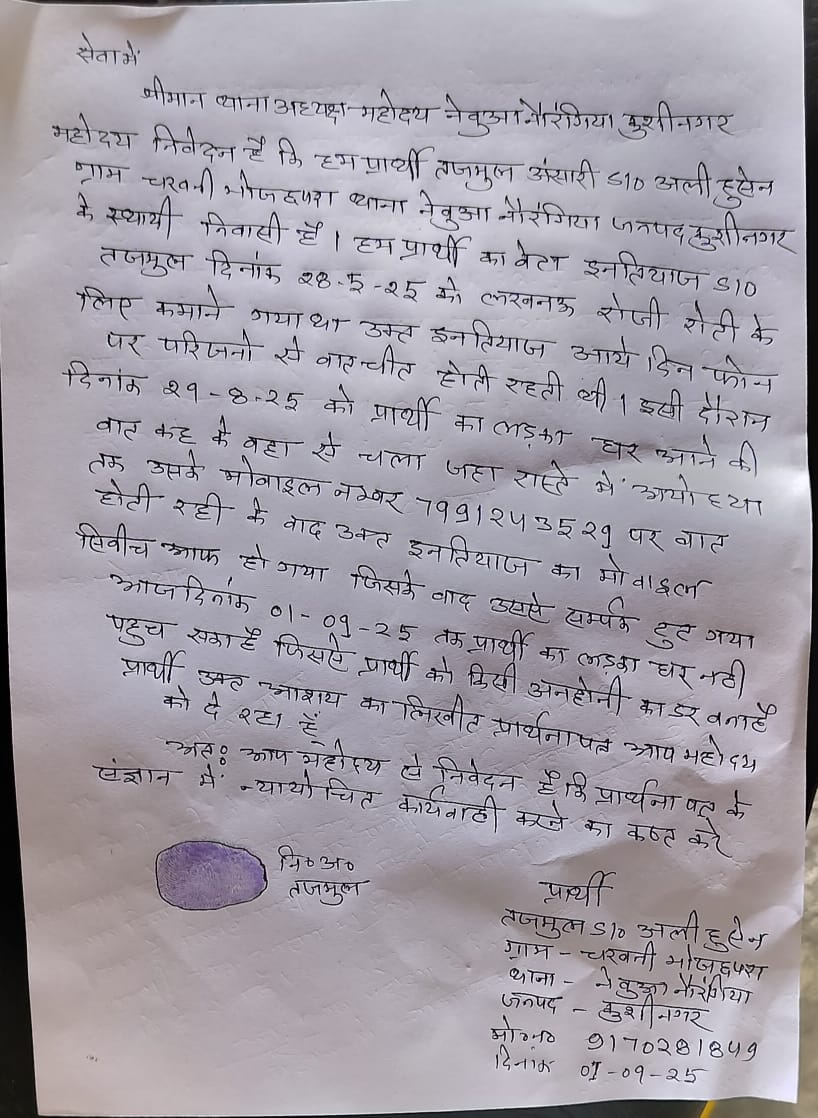 सेवा में
श्रीमान थाना अध्यक्ष महोदय नेवुआ नौरंगिया कुशीनगर
महोदय निवेदन है कि हम प्रार्थी तजमुल अंसारी S/O अली हुसेन
ग्राम चखनी भोजछपरा थाना नेवुआ नौरंगिया जनपद कुशीनगर
के स्थायी निवासी है। हम प्रार्थी का बेटा इनतियाज S/O
तजमुल दिनांक 28-5-25 को लखनऊ रोजी रोटी के
लिए कमाने गया था उक्त इनतियाज आये दिन फोन
पर परिजनो से वातचीत होती रहती थी। इसी दौरान
दिनांक 29-8-25 को प्रार्थी का लड़का घर आने की
वात कह के वहा से चला जहा रास्ते में अयोध्या
तक उसके मोवाइल नम्वर 7991243529 पर वात
होती रही के वाद उक्त इनतियाज का मोवाइल
स्विीच आफ हो गया जिसके वाद उससे सम्पर्क टुट गया
आज दिनांक 01-09-25 तक प्रार्थी का लड़का घर नही
पहुच सका है जिससे प्रार्थी को किसी अनहोनी का डर वना है
प्रार्थी उक्त आशय का लिखीत प्रार्थना पत्र आप महोदय
को दे रहा हैं
अतः आप महोदय से निवेदन है कि प्रार्थना पत्र के
संज्ञान में न्यायोचित कार्यवाही करने का कष्ट करे
नि० अ०
तजमुल
प्रार्थी
तजमुल S/O अली हुसेन
ग्राम - चखनी भोजछपरा
थाना - नेवुआ नौरंगिया
जनपद - कुशीनगर
मो०न० 9170281849
दिनांक 01-09-25